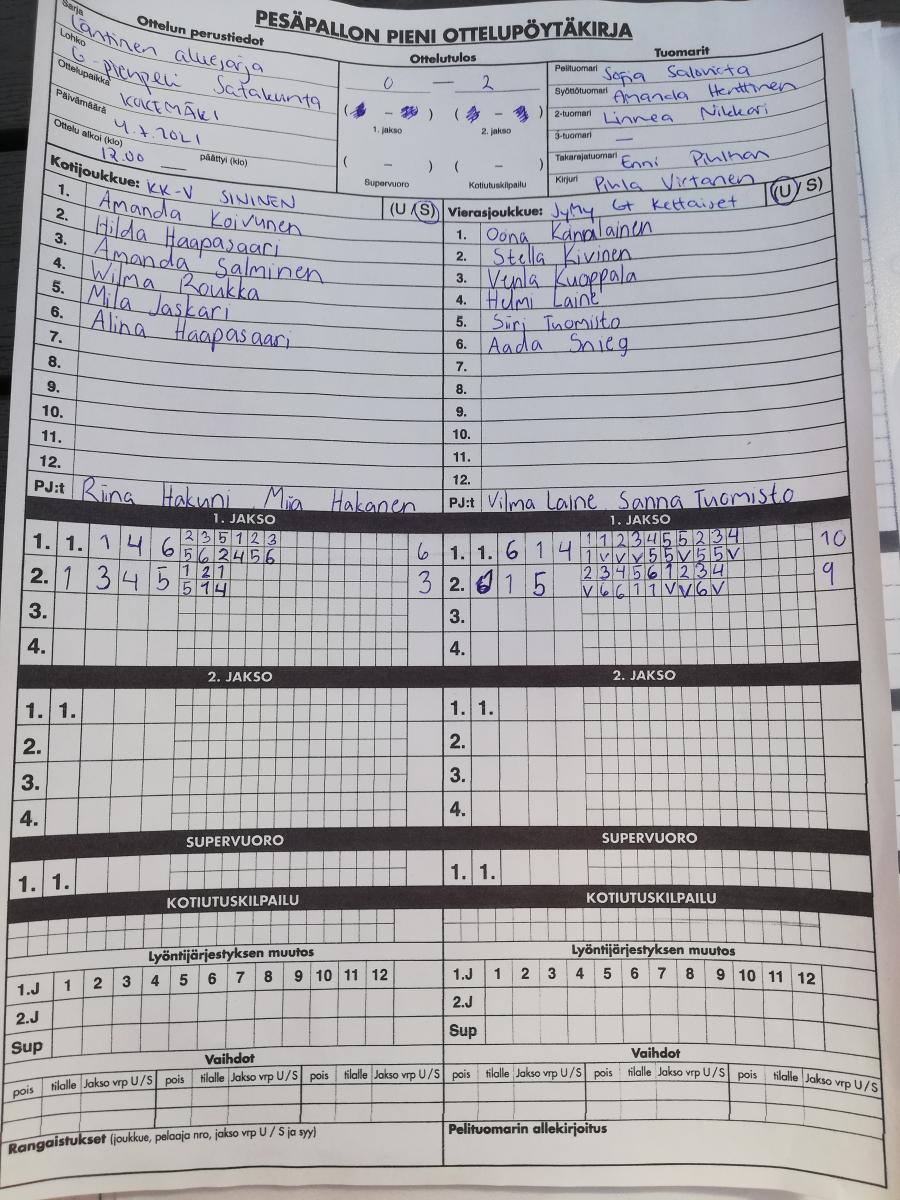 PESÄPALLON PIENI OTTELUPÖYTÄKIRJA
Ottelun perustiedot
Sarja Läntinen aluesarja
Lohko G-pienpeli Satakunta
Ottelupaikka KOKEMÄKI
Päivämäärä 4.7.2021
Ottelu alkoi (klo) 12.00 päättyi (klo)
Ottelutulos
0 — 2
( - ) ( - )
1. jakso 2. jakso
( - ) ( - )
Supervuoro Kotiutuskilpailu
Tuomarit
Pelituomari Sofia
Syöttötuomari Amanda Henttinen
2-tuomari Linnea Nikkari
3-tuomari —
Takarajatuomari Enni
Kirjuri Pihla Virtanen
Kotijoukkue: KK-V SININEN (U / S)
1. Amanda Koivunen
2. Hilda Haapasaari
3. Amanda Salminen
4. Wilma Roukka
5. Mila Jaskari
6. Alina Haapasaari
7.
8.
9.
10.
11.
12.
PJ:t Riina Hakuni Mia Hakanen
Vierasjoukkue: Jymy G Keltaiset (U / S)
1. Oona
2. Stella Kivinen
3. Venla Kuoppala
4. Helmi Laine
5. Siiri Tuomisto
6. Aada Snieg
7.
8.
9.
10.
11.
12.
PJ:t Vilma Laine Sanna Tuomisto
1. JAKSO
1. 1. 1 4 6 2 3 5 1 2 3 6
5 6 2 4 5 6
2. 1 3 4 5 1 2 1 3
5 1 4
3.
4.
1. JAKSO
1. 1. 6 1 4 1 1 2 3 4 5 5 2 3 4 10
1 V V V 5 5 V 5 5 V
2. 1 5 2 3 4 5 6 1 2 3 4 9
V 6 6 1 1 V V 6 V
3.
4.
2. JAKSO
1. 1.
2.
3.
4.
2. JAKSO
1. 1.
2.
3.
4.
SUPERVUORO
1. 1.
SUPERVUORO
1. 1.
KOTIUTUSKILPAILU
KOTIUTUSKILPAILU
Lyöntijärjestyksen muutos
1.J 1 2 3 4 5 6 7 8 9 10 11 12
2.J
Sup
Lyöntijärjestyksen muutos
1.J 1 2 3 4 5 6 7 8 9 10 11 12
2.J
Sup
Vaihdot
pois tilalle Jakso vrp U / S pois tilalle Jakso vrp U / S pois tilalle Jakso vrp U / S
Vaihdot
pois tilalle Jakso vrp U / S pois tilalle Jakso vrp U / S pois tilalle Jakso vrp U / S
Rangaistukset (joukkue, pelaaja nro, jakso vrp U / S ja syy)
Pelituomarin allekirjoitus